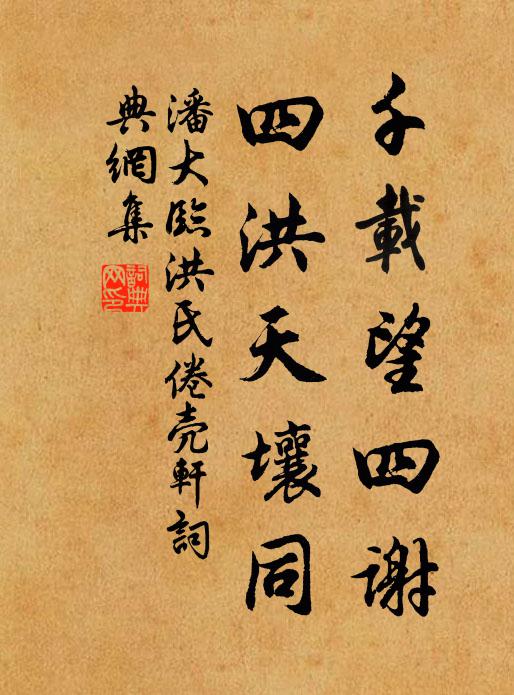 千載望四谢
四洪天壤同
潘大臨洪氏倦壳軒詞
典網集
詞典網印